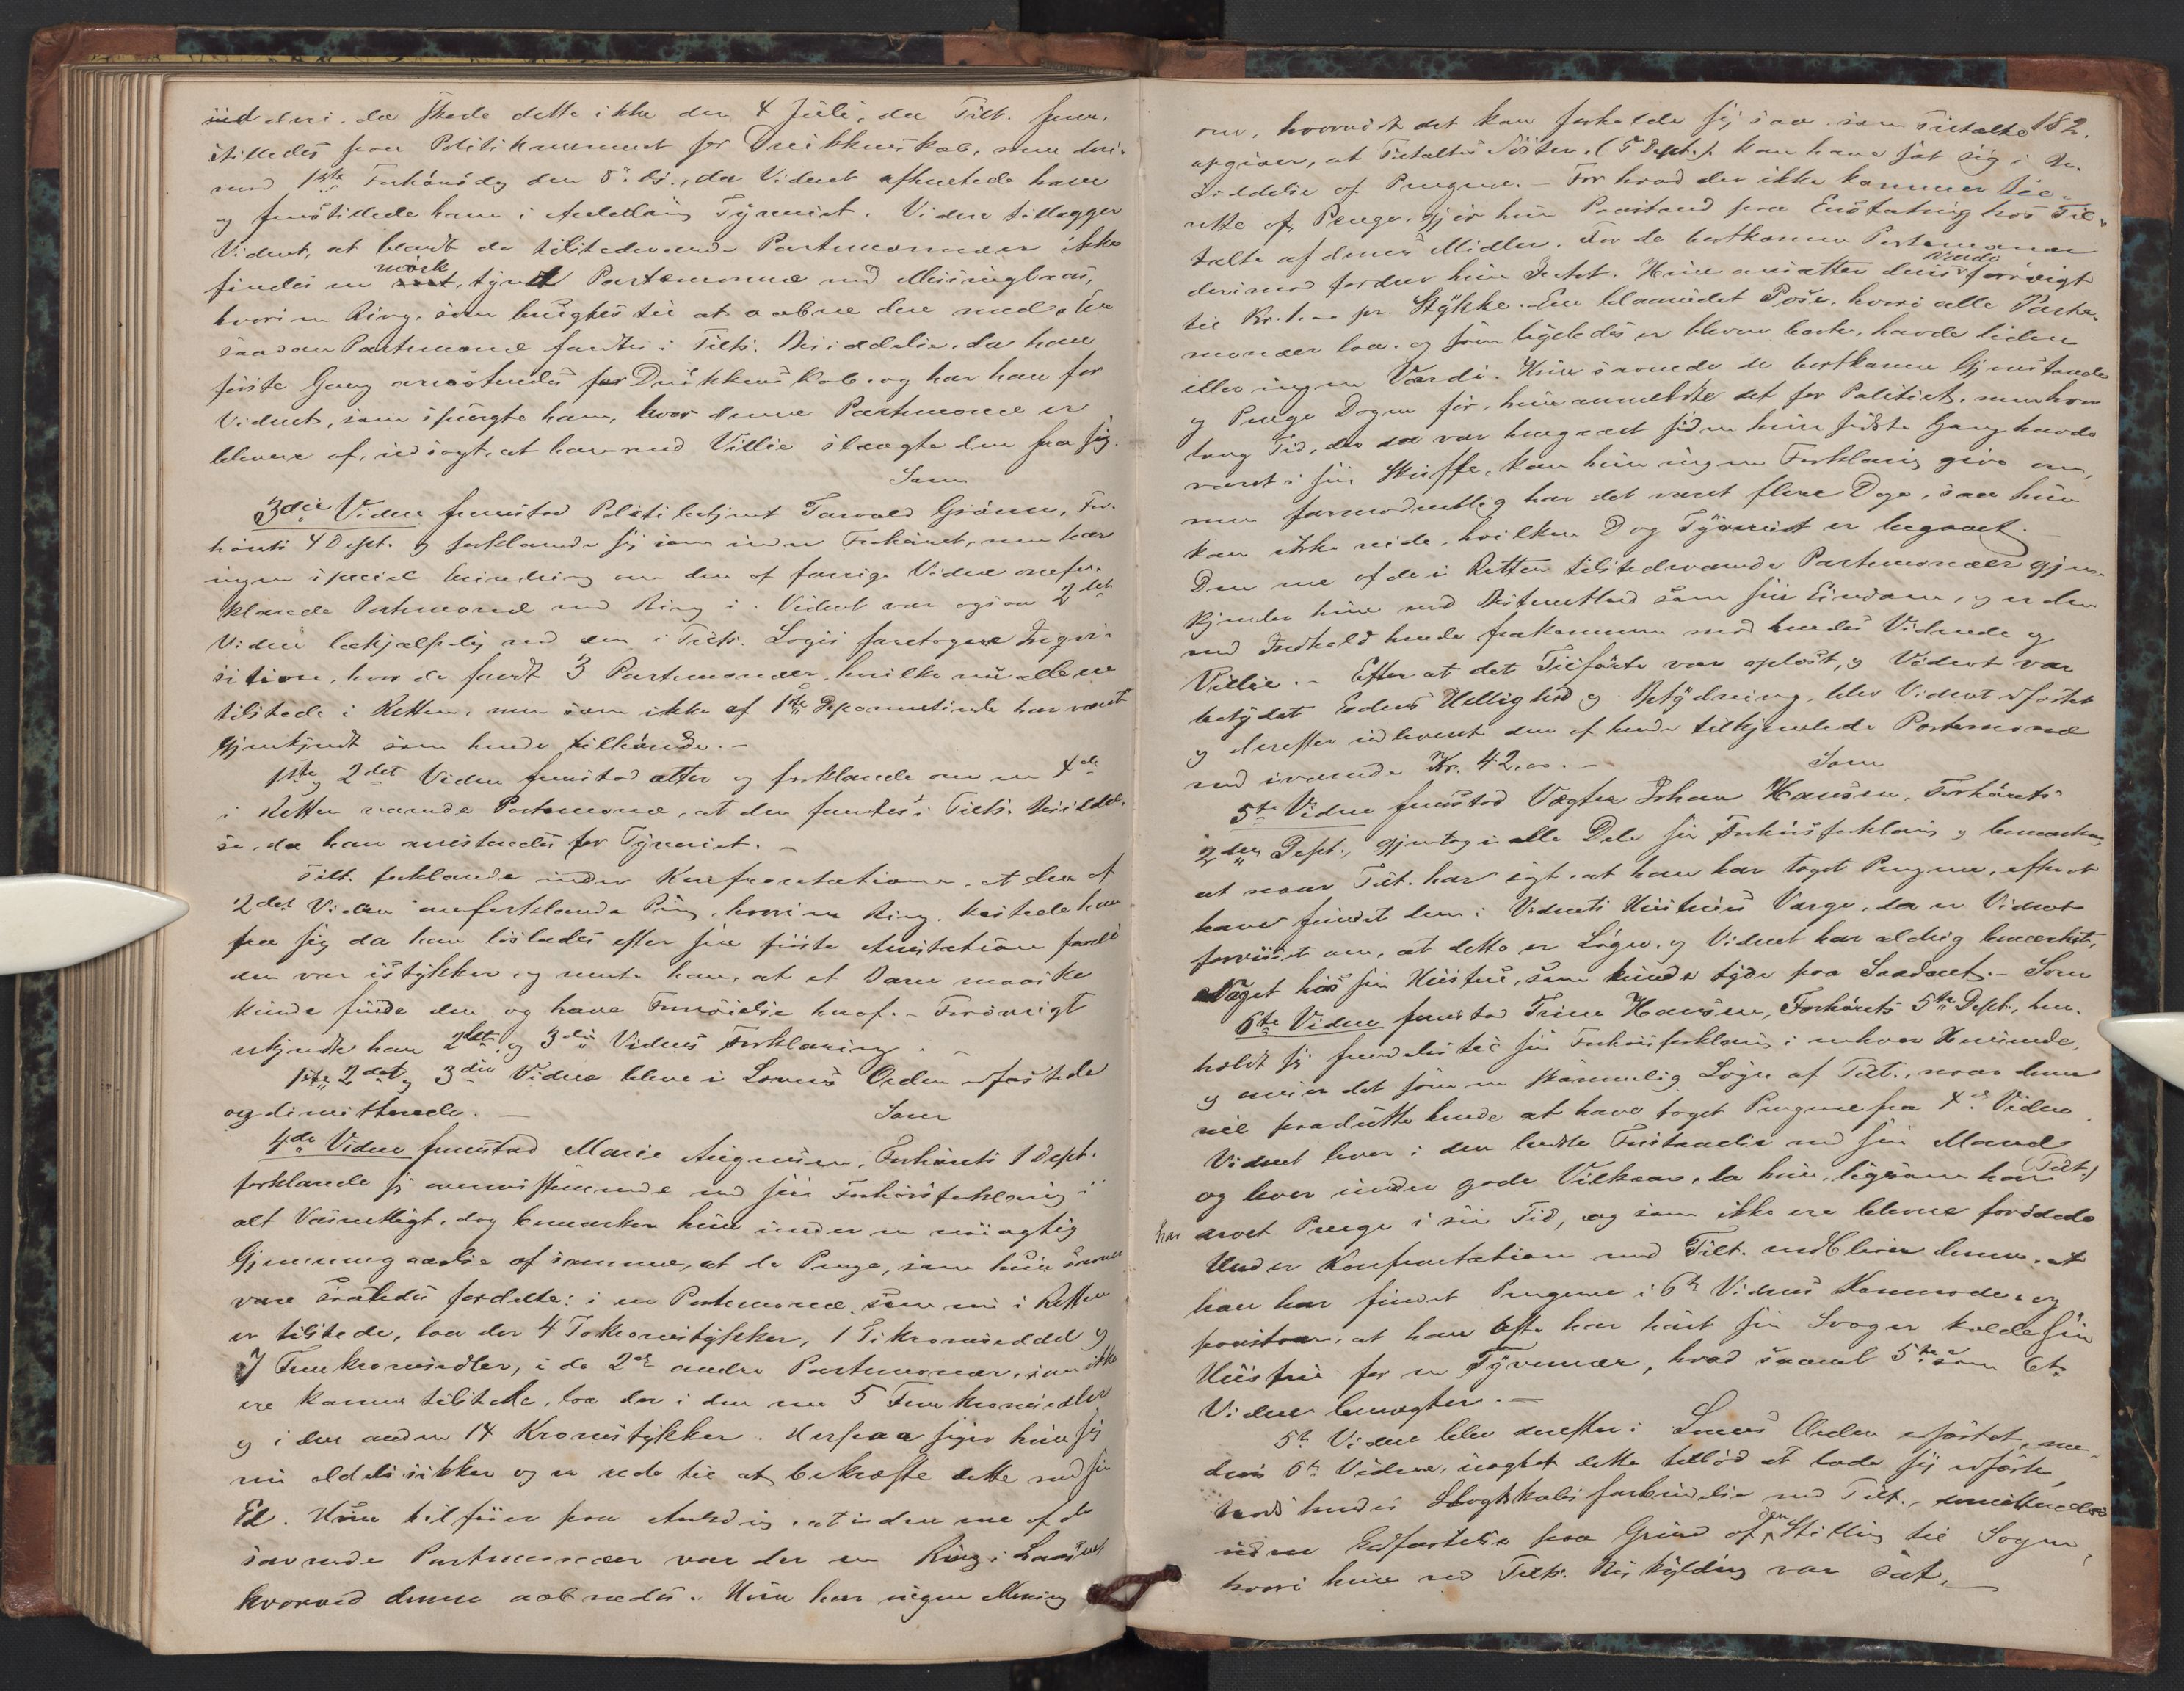 ud deri, da skede dette ikke den 4 Juli, da Tilt. frem-
stilledes paa Politikammeret for Drukkenskab, men deri-
mod 1ste Forhørsdag den 8. ds., da Vidnet afhentede ham
og fremstillede ham i Anledning Tyveriet. Videre tillægger
Vidnet, at blandt de tilstedeværende Portemonnæer ikke
findes en mørk, tynd Portemonnæ med Messinglaas,
hvori en Ring, som brugtes til at aabne den med. En
saadan Portemonnæ fandtes i Tilts. Besiddelse, da han
første Gang arresteredes for Drukkenskab, og har han for
Vidnet, som spurgte ham, hvor denne Portemonnæ er
bleven af, udsagt, at han med Villie slængte den fra sig.
Som
3die Vidne fremstod Politibetjent Torvald Grönn, For-
hørets 4 Dept. og forklarede sig som under Forhøret, men har
ingen speciel Erindring om den af forrige Vidne omfor-
klarede Portemonnæ med Ring i. Vidnet var ogsaa 2det
Vidne behjælpelig ved den i Tilts. Logis foretagne Inqvi-
sition, hvor de fandt 3 Portemonnæer, hvilke nu alle ere
tilstede i Retten, men som ikke af 1ste Deponentinde har været
gjenkjendt som hende tilhørende. -
1ste og 2det Vidne fremstod atter og forklarede om en 4de
i Retten værende Portemonnæ, at den fandtes i Tilts. Besiddel-
se, da han arresteredes for Tyveriet. -
Tilt. forklarede under Konfrontationen, at den af
2det Vidne omforklarede Pung, hvori en Ring, kastede han
fra sig da han löslodes efter sin første Arrestation fordi
den var istykker og mente han, at et Barn maaske
kunde finde den og have Fornøielse heraf. - Forøvrigt
vedkjendte han 2det og 3die Vidnes Forklaring. -
1ste, 2det og 3die Vidne bleve i Lovens Orden edfæstede
og dimitterede. - Som
4de Vidne fremstod Marie Augensen, Forhørets 1 Dept.
forklarede sig overensstemmende med sin Forhørsforklaring i
alt Væsentligt, dog bemærker hun under en nöiagtig
Gjennemgaaelse af samme, at de Penge, som hun savner
vare saaledes fordelte: i en Portemonnæ, som nu i Retten
er tilstede, laa der 4 Tokronestykker, 1 Tikroneseddel og
7 Femkronesedler, i de 2de andre Portemonnæer, som ikke
ere komne tilstede, laa der i den ene 5 Femkronesedler
og i den anden 14 Kronestykker. Herpaa siger hun sig
nu aldeles sikker og er rede til at bekræfte dette med sin
Ed. Hun tilföier paa Anledning, at i den ene af de
savnede Portemonnæer var der en Ring i Laaset
hvorved denne aabnedes. Hun har ingen Mening
182.
om, hvorvidt det kan forholde sig saa som Tiltalte
opgiver, at Tiltaltes Söster (5 Dept.) kan have sat sig i Be-
siddelse af Pengene. - For hvad der ikke kommer til-
rette af Penge, gjør hun Paastand paa Erstatning hos Til-
talte af dennes Midler. For de bortkomne Portemonnær
derimod fordrer hun Intet. Hun ansætter deres Værdi forøvrigt
til Kr. 1.00 pr. Stykke. En blaarudet Pose, hvori alle Porte-
monnæer laa, og som ligeledes er bleven borte, havde liden
eller ingen Værdi. Hun savnede de bortkomne Gjenstande
og Penge Dagen før, hun anmeldte det for Politiet, men hvor
lang Tid, der da var hengaaet siden hun sidste Gang havde
været i sin Skuffe, kan hun ingen Forklaring give om,
men formodentlig har det været flere Dage, saa hun
kan ikke vide, hvilken Dag Tyveriet er begaaet.
Den ene af de i Retten tilstedeværende Portemonnæer gjen-
kjender hun med Bestemthed som sin Eiendom, og er den
med Indhold hende frakommen mod hendes Vidende og
Villie. - Efter at det Tilførte var oplæst, og Vidnet var
betydet Edens Hellighed og Betydning, blev Vidnet edfæstet
og derefter udleveret den af hende tilkjendte Portemonnæ
med iværende Kr. 42.00. - Som
5te Vidne fremstod Vægter Johan Hansen, Forhørets
2den Dept., gjentog i alle Dele sin Forhørsforklaring og bemærker,
at naar Tilt. har sagt, at han har taget Pengene, efter at
have fundet dem i Vidnets Hustrues Værge, da er Vidnet
forvisset om, at dette er Løgn, og Vidnet har aldrig bemærket
Noget hos sin Hustru, som kunde tyde paa Saadant. - Som
6te Vidne fremstod Trine Hansen, Forhørets 5te Dept., hen-
holdt sig fremdeles til sin Forhørsforklaring i enhver Henseende,
og anser det som en skammelig Løgn af Tilt., naar denne
vil paadutte hende at have taget Pengene fra 4de Vidne.
Vidnet lever i den bedste Forstaaelse med sin Mand
og lever under gode Vilkaar, da hun, ligesom han (Tilt.)
har arvet Penge i sin Tid, og som ikke ere blevne forødede
Under Konfrontation med Tilt. vedbliver denne, at
han har fundet Pengene i 6te Vidnes Kommode, og
paastaar, at han ofte har hørt sin Svoger kalde sin
Hustru for en Tyvemær, hvad saavel 5te som 6te
Vidne benegter. -
5te Vidne blev derefter i Lovens Orden edfæstet, me-
dens 6te Vidne, uagtet dette tilbød at lade sig edfæste,
trods hendes Slægtskabsforbindelse med Tilt., dimitteredes
uden Edfæstelse paa Grund af den Stilling til Sagen,
hvori hun ved Tilts. Beskylding var sat. -